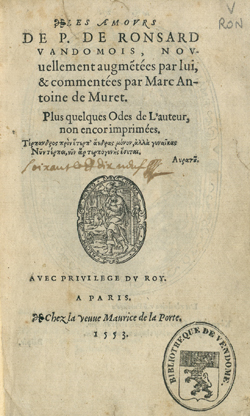 V
RON
LES AMOVRS
DE P. DE RONSARD
VANDOMOIS, NOV-
uellement augmẽtées par lui,
& commentées par Marc An-
toine de Muret.
Plus quelques Odes de L'auteur,
non encor imprimées.
AVEC PRIVILEGE DV ROY.
A PARIS.
Chez la veuue Maurice de la Porte.
1553.
BIBLIOTHEQUE DE VENDOME.